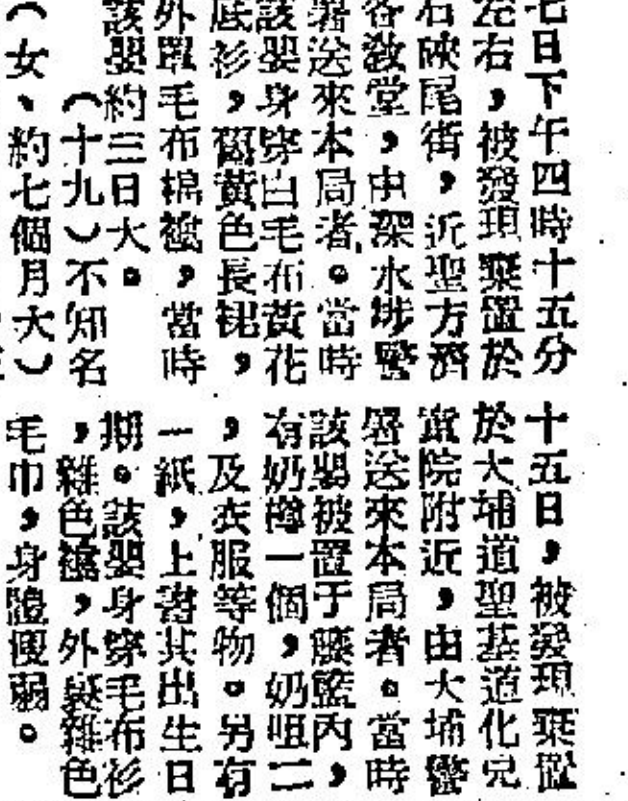 七日下午四時十五分
左右，被發現棄置於
石硤尾街，近聖方濟
各教堂，由深水埗警
署送來本局者。當時
該嬰身穿白毛布黃花
底衫，舊黃色長裙，
外罩毛布棉襖，當時
該嬰約三日大。
（十九）不知名
（女、約七個月大）
十五日，被發現棄置
於大埔道聖基道化兒
童院附近，由大埔警
署送來本局者。當時
該嬰被置于藤籃內，
有奶樽一個，奶咀二
，及衣服等物。另有
一紙，上書其出生日
期。該嬰身穿毛布衫
，雜色襖，外裹雜色
毛巾，身體瘦弱。